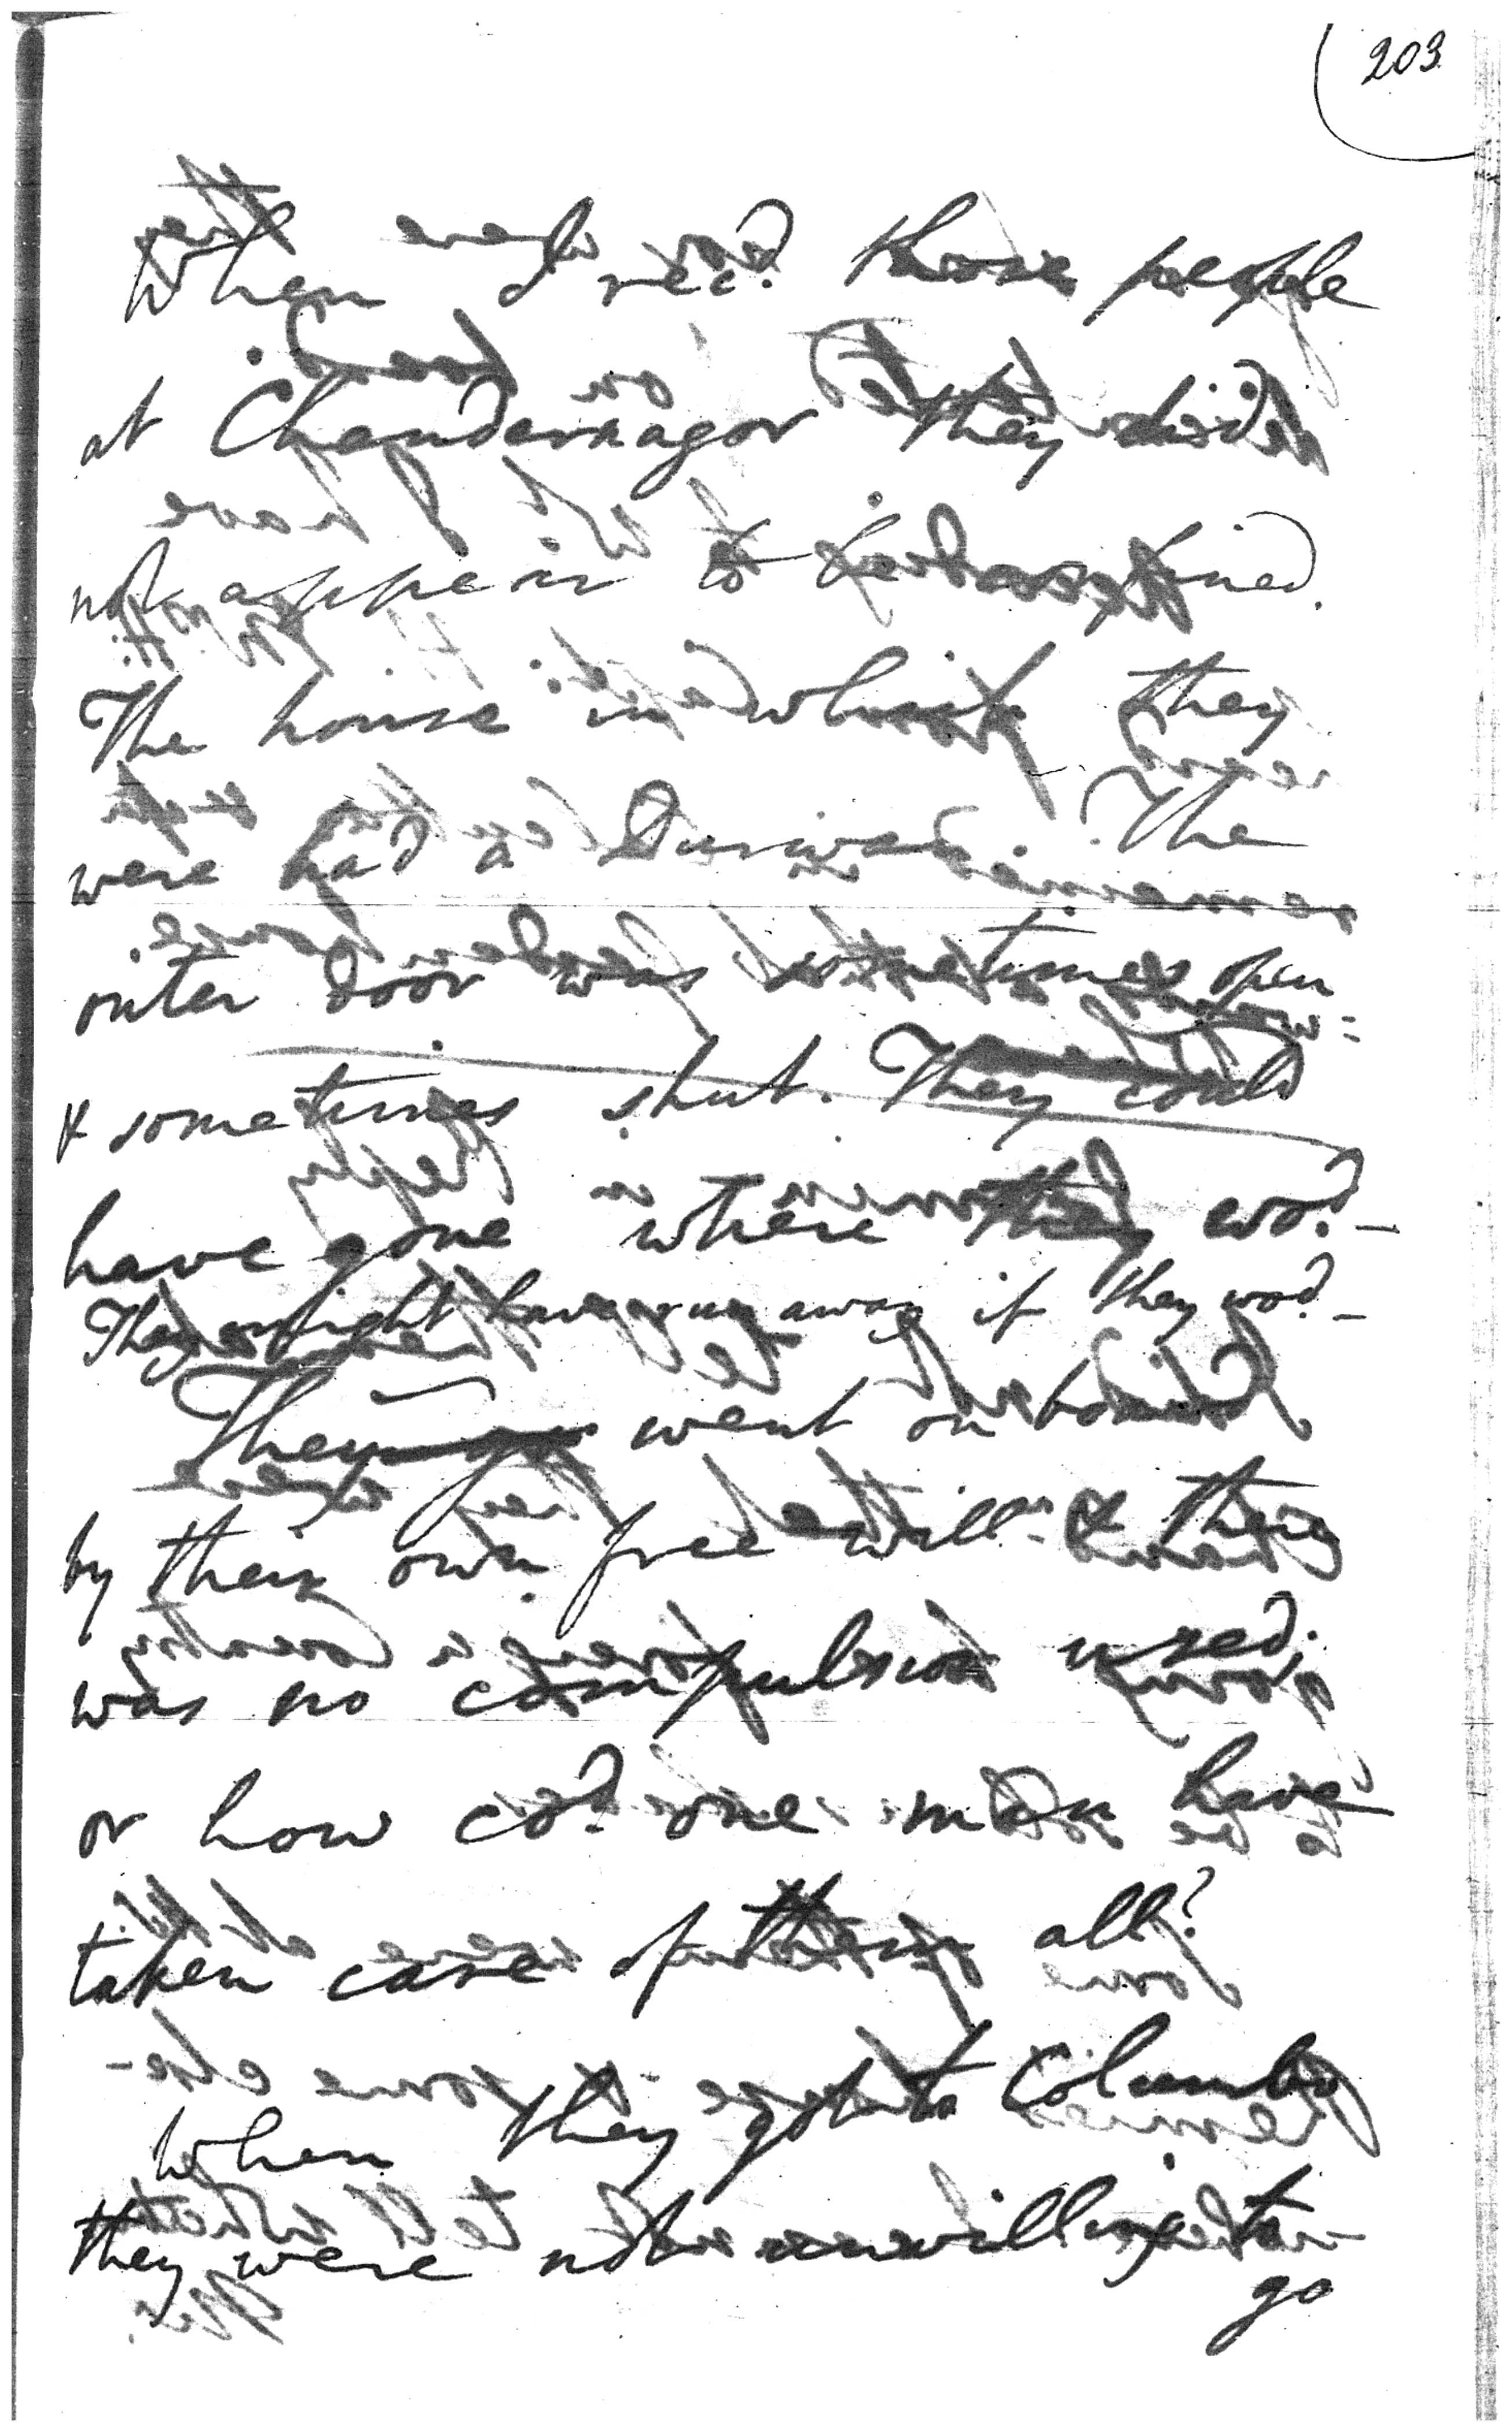 203
When I rec.d these people
at Chandernagor they did
not appear to be confined.
The house in which they
were had a Durwan. The
outer door was sometimes open
& sometimes shut. They could
have gone where they wo.d -
They might have run away if they wo.d -
They went on board
by their own free will & there
was no compulsion used.
or how co.d one man have
taken care of them all?
When they got to Columbo
they were not unwilling to
go